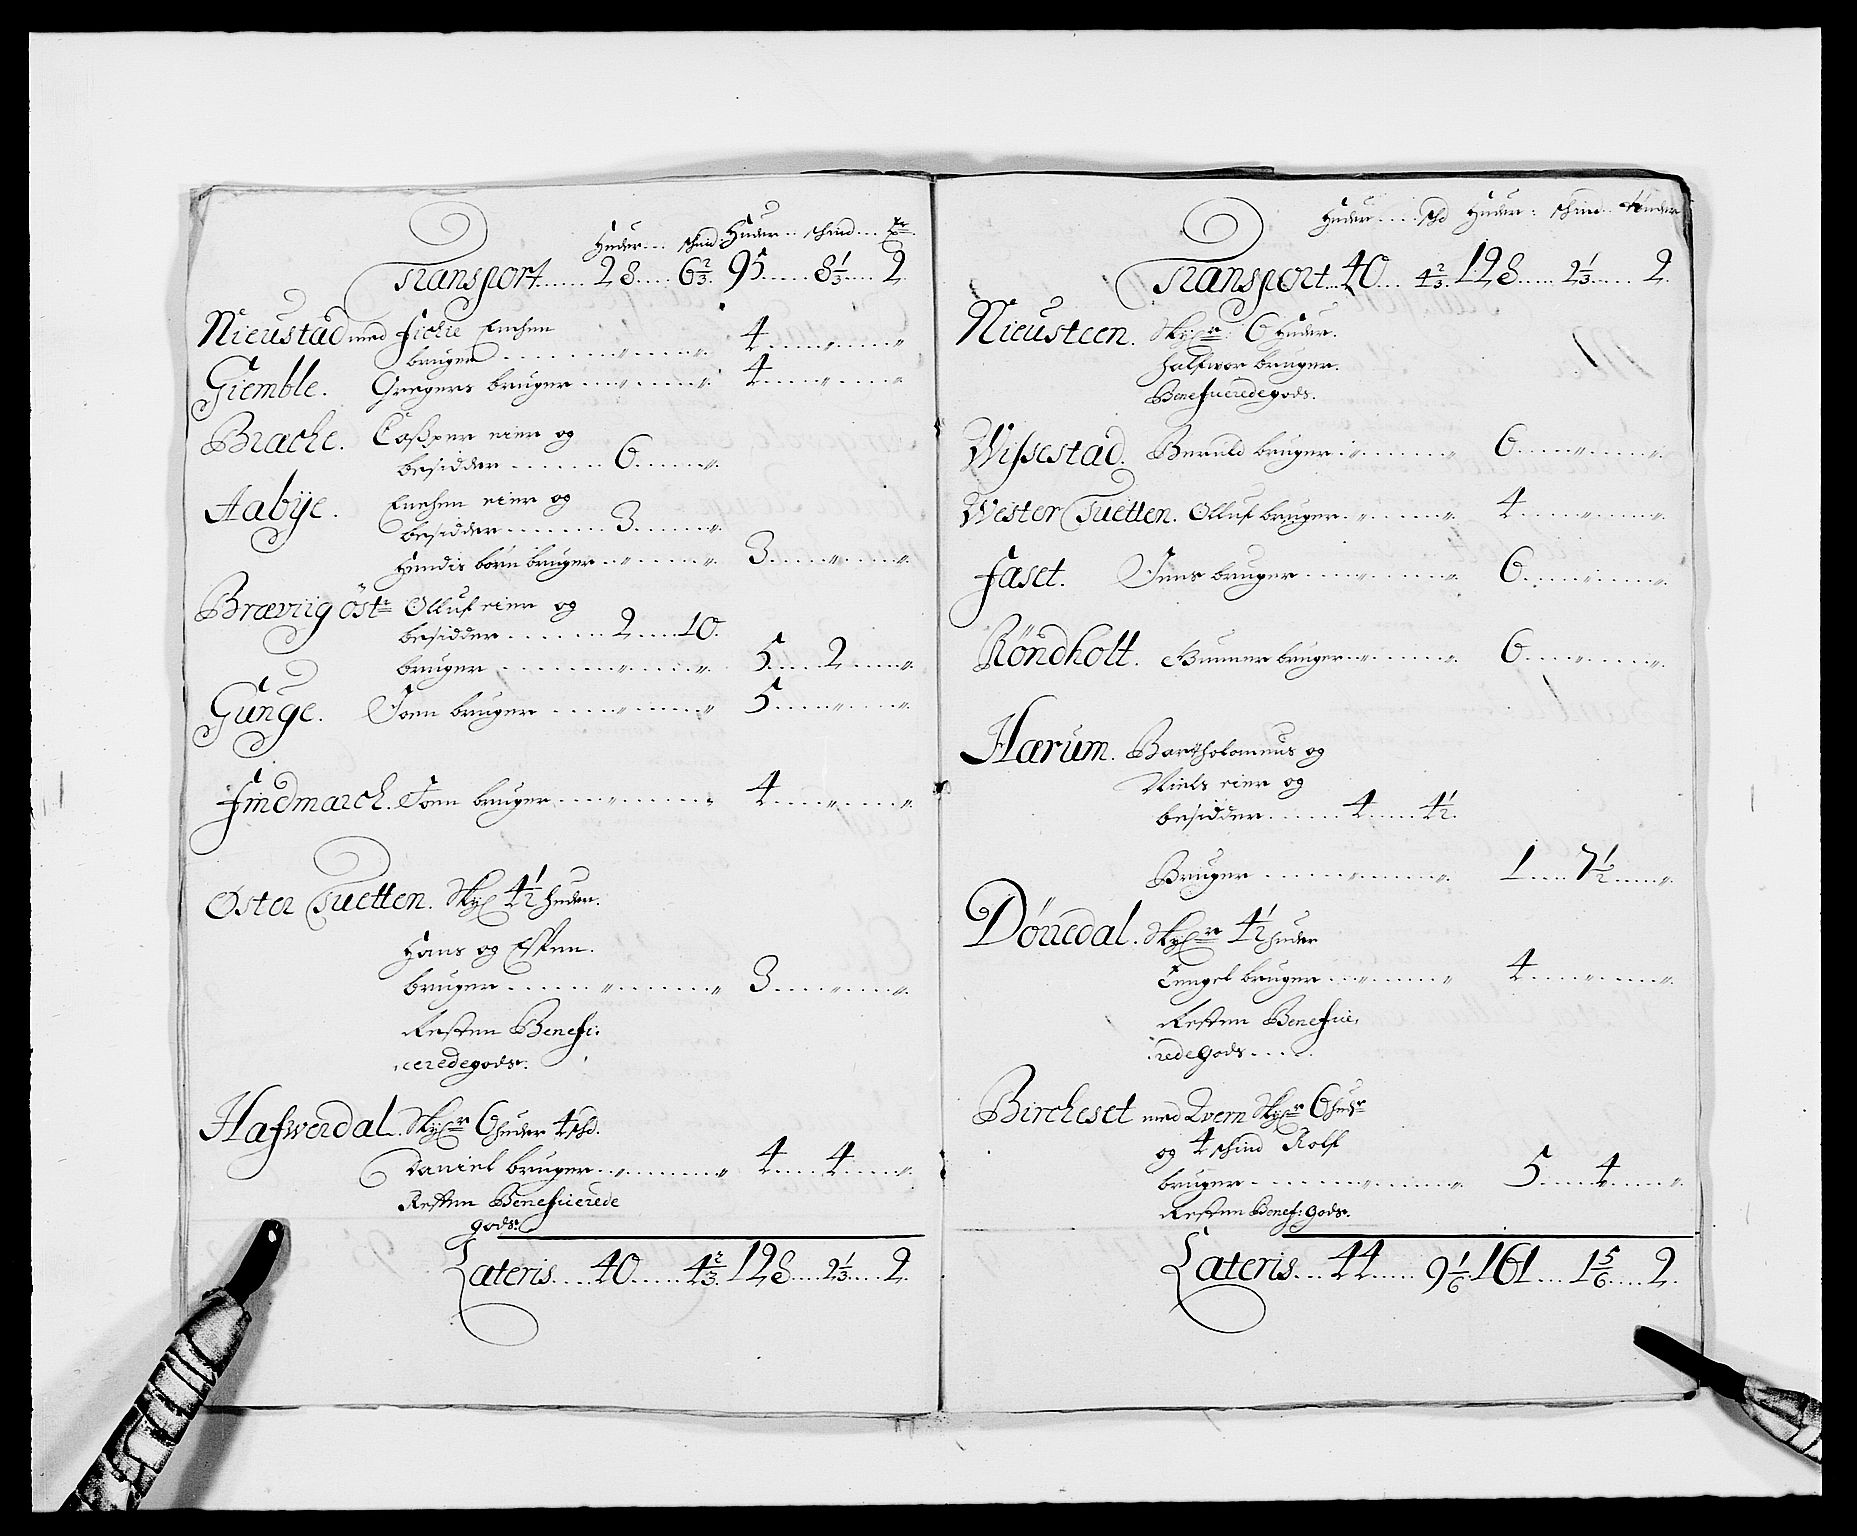 Huder... schind Huder.. schind... Tr
Transport...... 28.... 6 2/3. 95...... 8 1/3.... 2
Nieustad med Fichie Enchen
bruger ......... „ ...... „. 4......„.....„
Giemble. Gregers bruger ...„......„. 4......„.....„
Brache. Casper eier og
besidder ....... 6......„.
Aabÿe. Enchen eier og
besidder........ 3......„.
Hundis börn bruger...„......„. 3......„.....„.
Bræviig östr Olluf eier og
besidder ....... 2.....10.
bruger ......... „......„. 5.....2.....„.
Gunge. Joen bruger ......„......„ 5......„.....„
Findmarch. Joen bruger......„......„ 4......„.....„
Øster Tuetten. Skÿl 4 1/2 huder.
Hans og Espen.
bruger ........ „......„ 3......„.....„.
Resten Benefi:
ceredegods.
Hafwerdal. Skÿlr 6 huder 4 schd.
Daniel bruger...„......„ 4.....4.....„.
Resten Beneficerede
gods.
Lateris.... 40...... 4 2/3. 128.... 2 1/3.... 2.
Huder..... schd Huder: schind... tönder
Transport... 40... 4 2/3. 128...... 2 1/3...... 2.
Nieusteen. Skÿlr. 6 Huder.
Halfwor bruger.
Beneficeredegods.
Wissestad. Beruld bruger...„......„ 6......„.....„.
Wester Tuetten. Olluf bruger...„......„ 4......„.....„.
Faset. Jens bruger......„......„. 6......„.....„.
Röndholt. Gunner bruger...„......„. 6......„.....„.
Hærum. Bartholomeus og
Niels eier og
besidder....... 4..... 4 1/2.
Bruger ........ „......„. 1..... 7 1/2.....„.
Dönedal. Skÿlr 4 1/2 huder
Tengel bruger...„......„ 4......„.....„.
Resten Benefice,
redegods.....
Bircheset med Qvern Skÿlr 6 hudr
og 4 schind Rolf
bruger......... „......„. 5.....4.....„.
Resten Benef: gods.
Lateris... 44...... 9 1/6. 161.... 1 5/6.... 2.